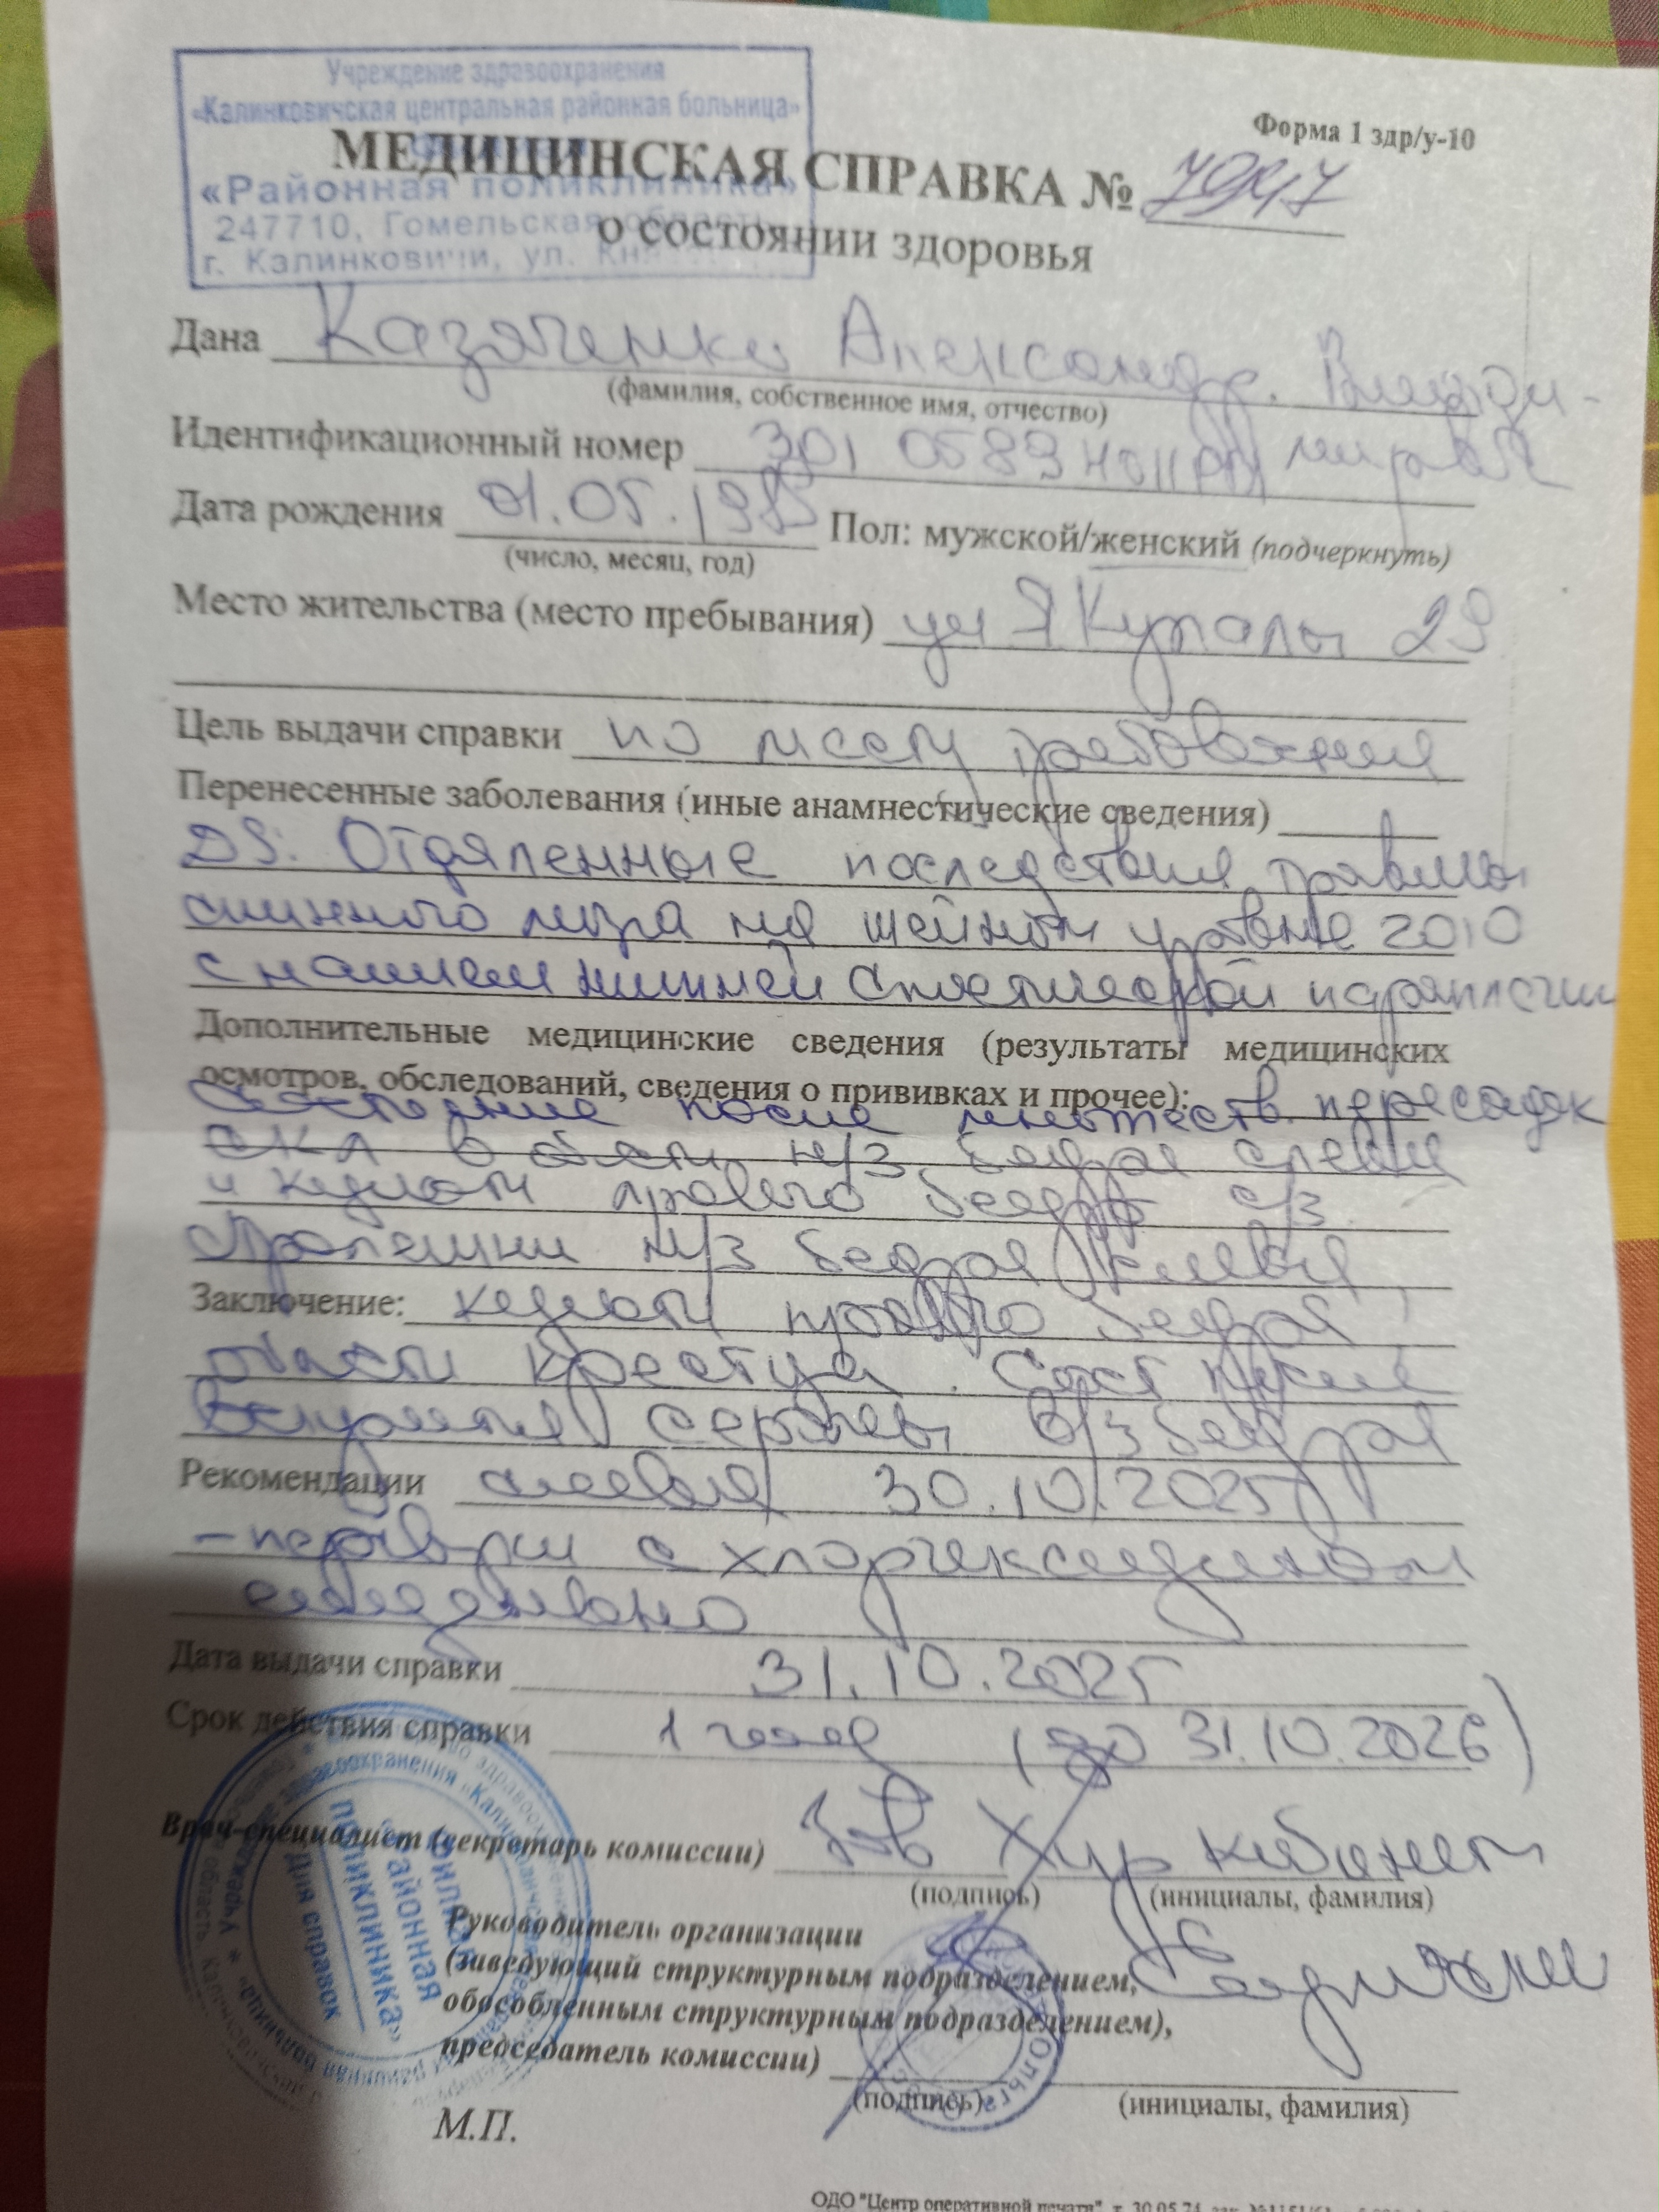 Учреждение здравоохранения
«Калинковичская центральная районная больница»
Форма 1 здр/у-10
МЕДИЦИНСКАЯ СПРАВКА № 7947
«Районная поликлиника»
247710, Гомельская область
о состоянии здоровья
г. Калинковичи, ул.
Дана Казяченко Александр Влади-
(фамилия, собственное имя, отчество)
Идентификационный номер мирович
Дата рождения 01.05.1989 Пол: мужской/женский (подчеркнуть)
(число, месяц, год)
Место жительства (место пребывания) ул Я Купалы 29
Цель выдачи справки по месту требования
Перенесенные заболевания (иные анамнестические сведения)
DS: Отдаленные последствия травмы
спинного мозга на шейном уровне 2010
с нижней спастической параплегии
Дополнительные медицинские сведения (результаты медицинских
осмотров, обследований, сведения о прививках и прочее):
Состояние после множеств. пересадок
в обл н/з бедра слева
и правого бедра с/з.
н/з бедра слева,
Заключение: правого бедра,
области крестца. Сост после
вскрытия в/з бедра
Рекомендации слева 30.10.2025
- перевязки с хлоргексидином
ежедневно
Дата выдачи справки 31.10.2025
Срок действия справки 1 год (до 31.10.2026)
Врач-специалист (секретарь комиссии) Зав Хир кабинетом
(подпись) (инициалы, фамилия)
Руководитель организации
(заведующий структурным подразделением,
обособленным структурным подразделением),
председатель комиссии)
(подпись) (инициалы, фамилия)
районная
поликлиника»
Для справок
М.П.
ОДО "Центр оперативной печати", т. 30.05.24